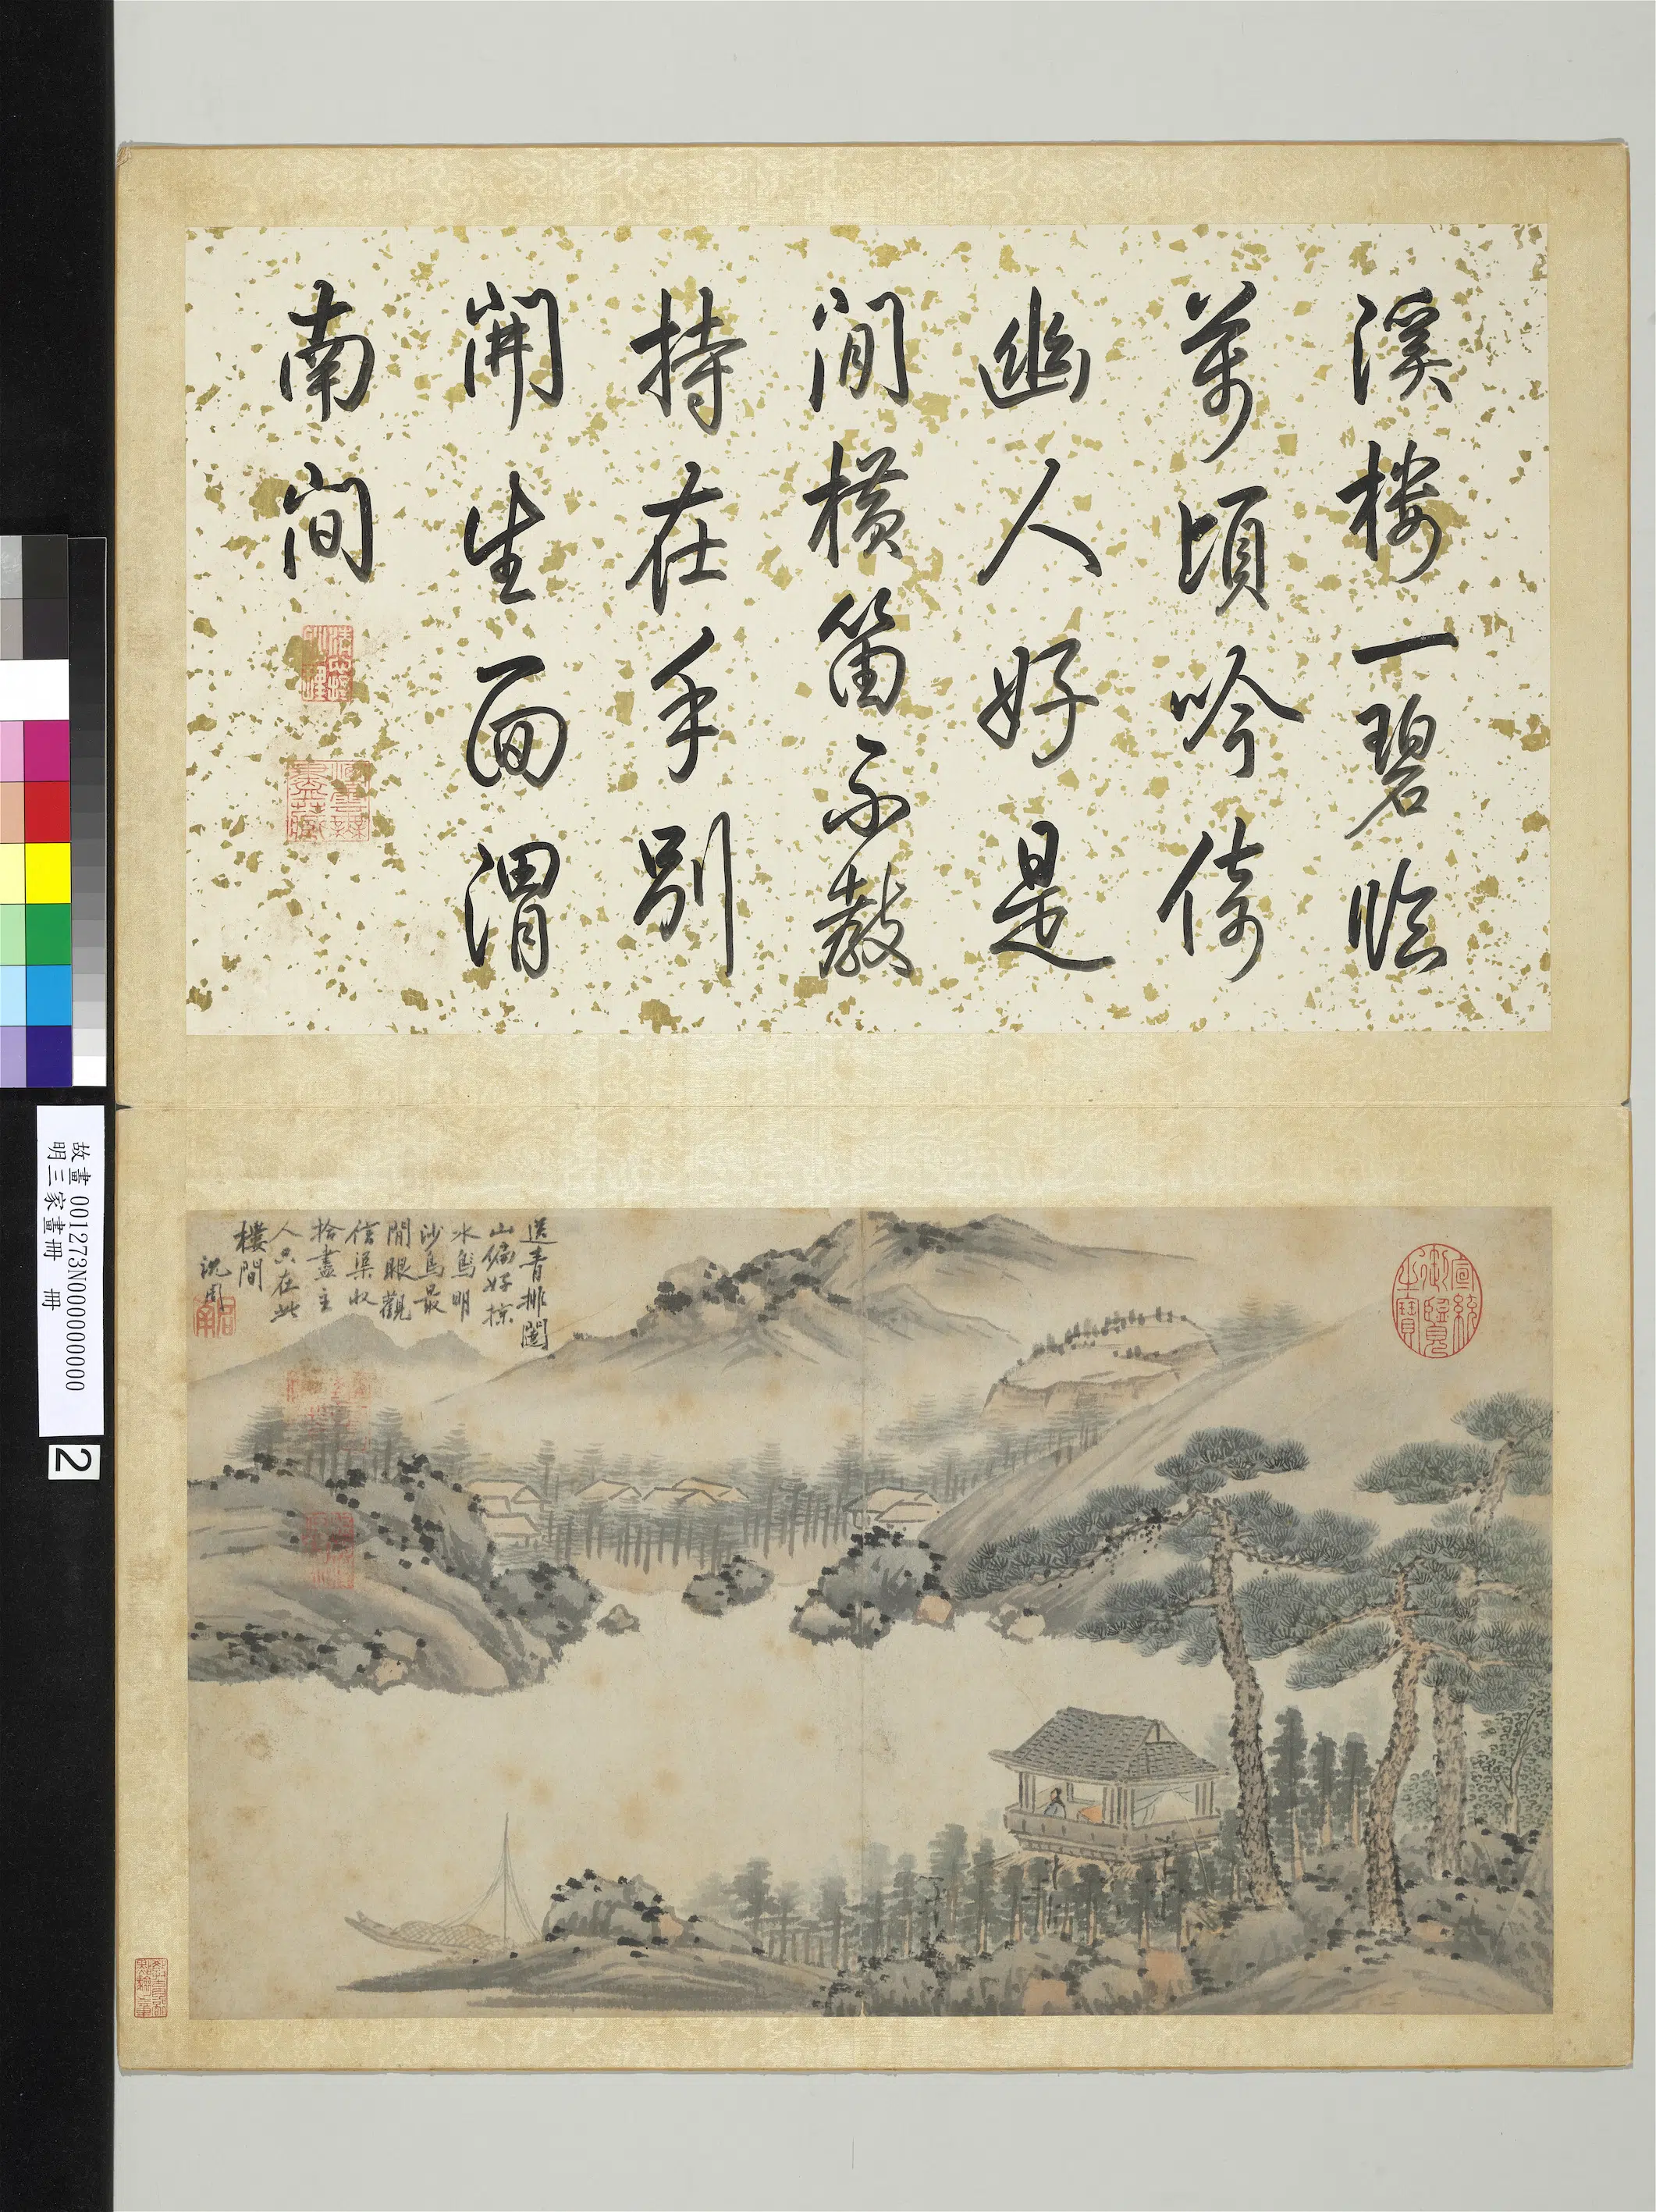 溪樓一碧臨
萬頃吟倚
幽人好是
閒橫笛不教
持在手別
開生面渭
南間
送青排闥
山偏好掠
水鳥明
沙鳥最
閒眼觀
信渠收
拾盡主
人只在此
樓間
沈周
宣統御覽之寶
故畫 001273N000000000
明三家畫冊 冊
2